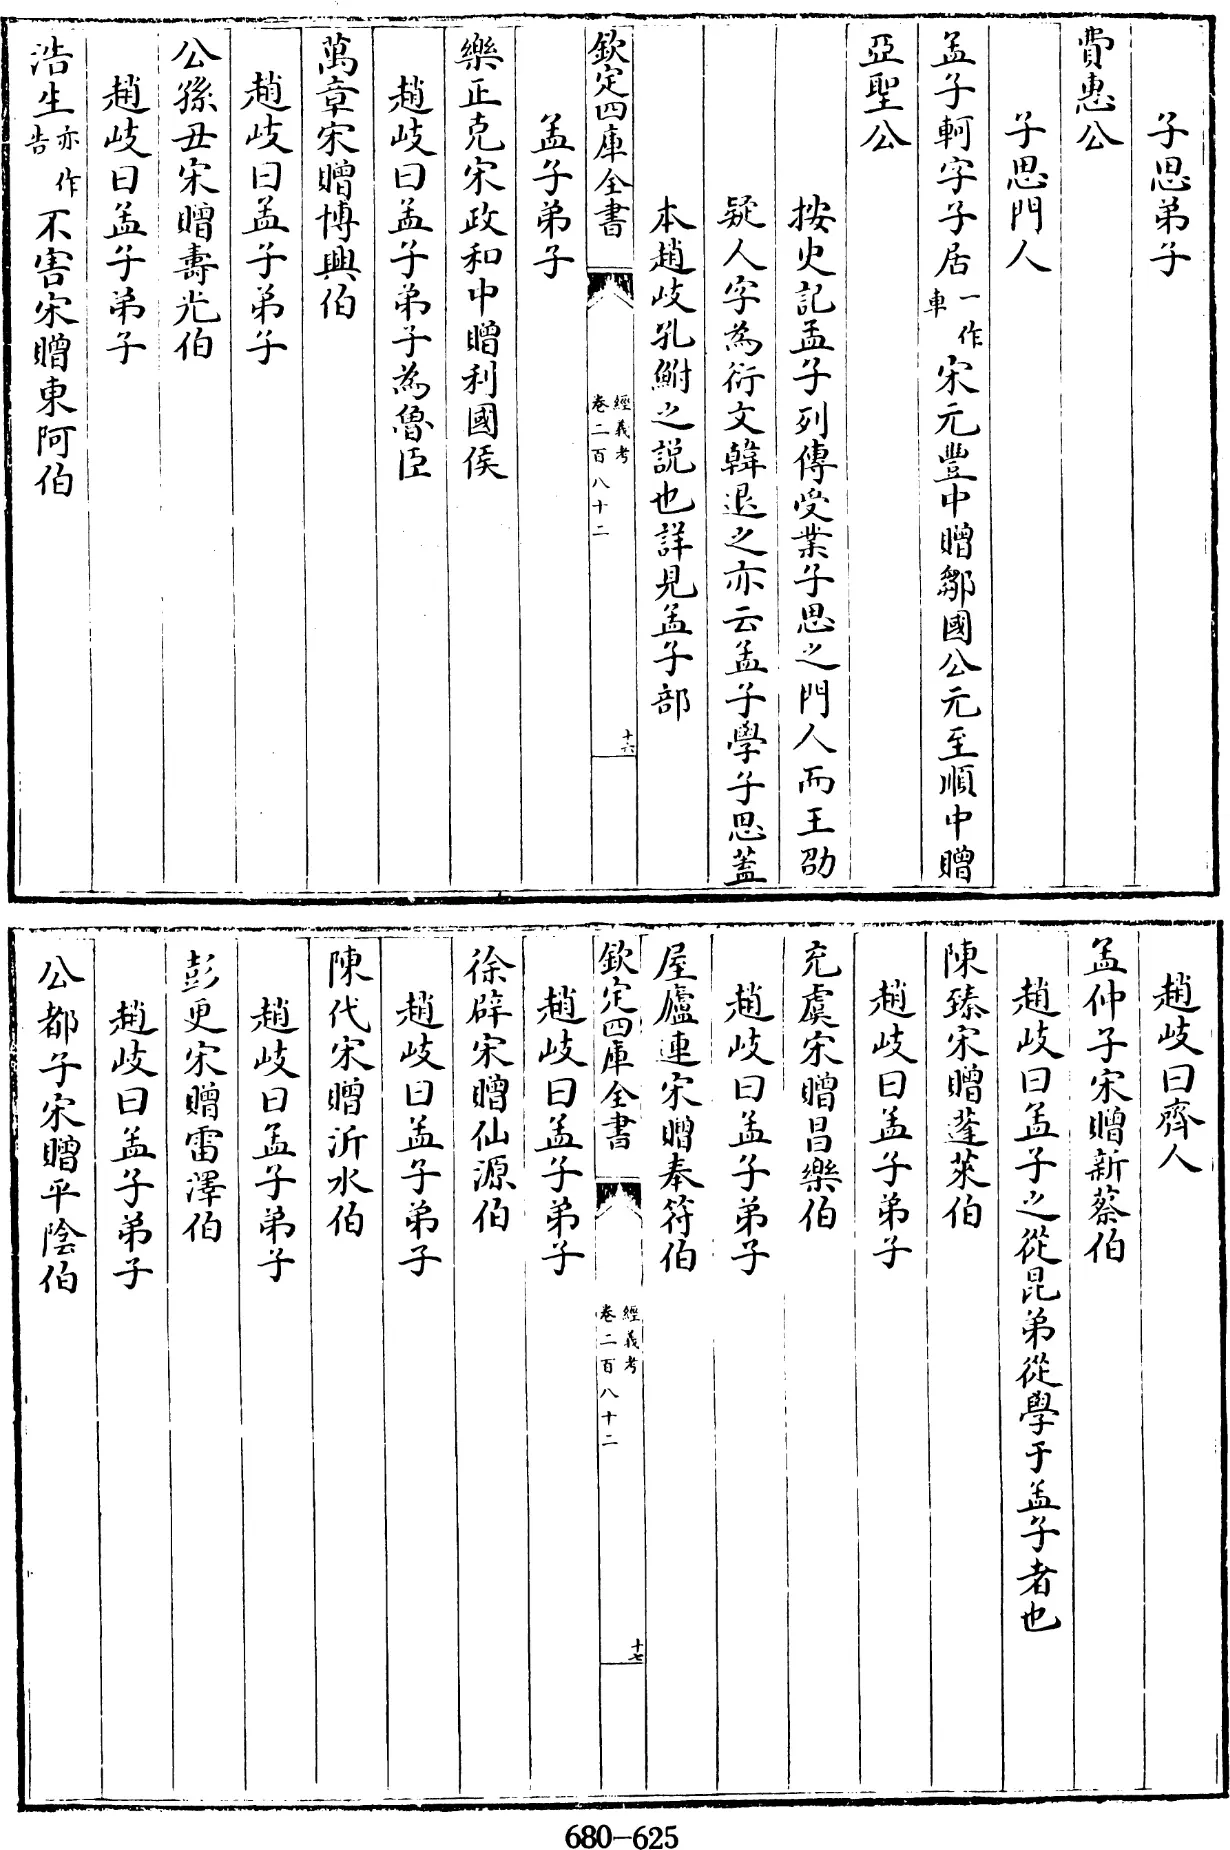 子思弟子
費惠公
子思門人
孟子軻字子居一作車宋元豐中贈鄒國公元至順中贈
亞聖公
按史記孟子列傳受業子思之門人而王劭
疑人字為衍文韓退之亦云孟子學子思蓋
本趙岐孔鮒之說也詳見孟子部
欽定四庫全書
經義考
卷二百八十二
十六
孟子弟子
樂正克宋政和中贈利國侯
趙岐曰孟子弟子為魯臣
萬章宋贈博興伯
趙岐曰孟子弟子
公孫丑宋贈壽光伯
趙岐曰孟子弟子
浩生亦作告不害宋贈東阿伯
趙岐曰齊人
孟仲子宋贈新蔡伯
趙岐曰孟子之從昆弟從學于孟子者也
陳臻宋贈蓬萊伯
趙岐曰孟子弟子
充虞宋贈昌樂伯
趙岐曰孟子弟子
屋廬連宋贈奉符伯
欽定四庫全書
經義考
卷二百八十二
十七
趙岐曰孟子弟子
徐辟宋贈仙源伯
趙岐曰孟子弟子
陳代宋贈沂水伯
趙岐曰孟子弟子
彭更宋贈雷澤伯
趙岐曰孟子弟子
公都子宋贈平陰伯
680-625